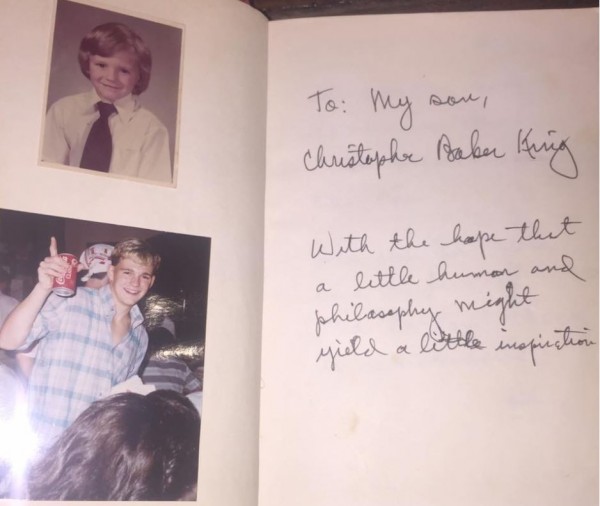 To: My son,
Christopher Baker King
With the hope that
a little humor and
philosophy might
yield a little inspiration